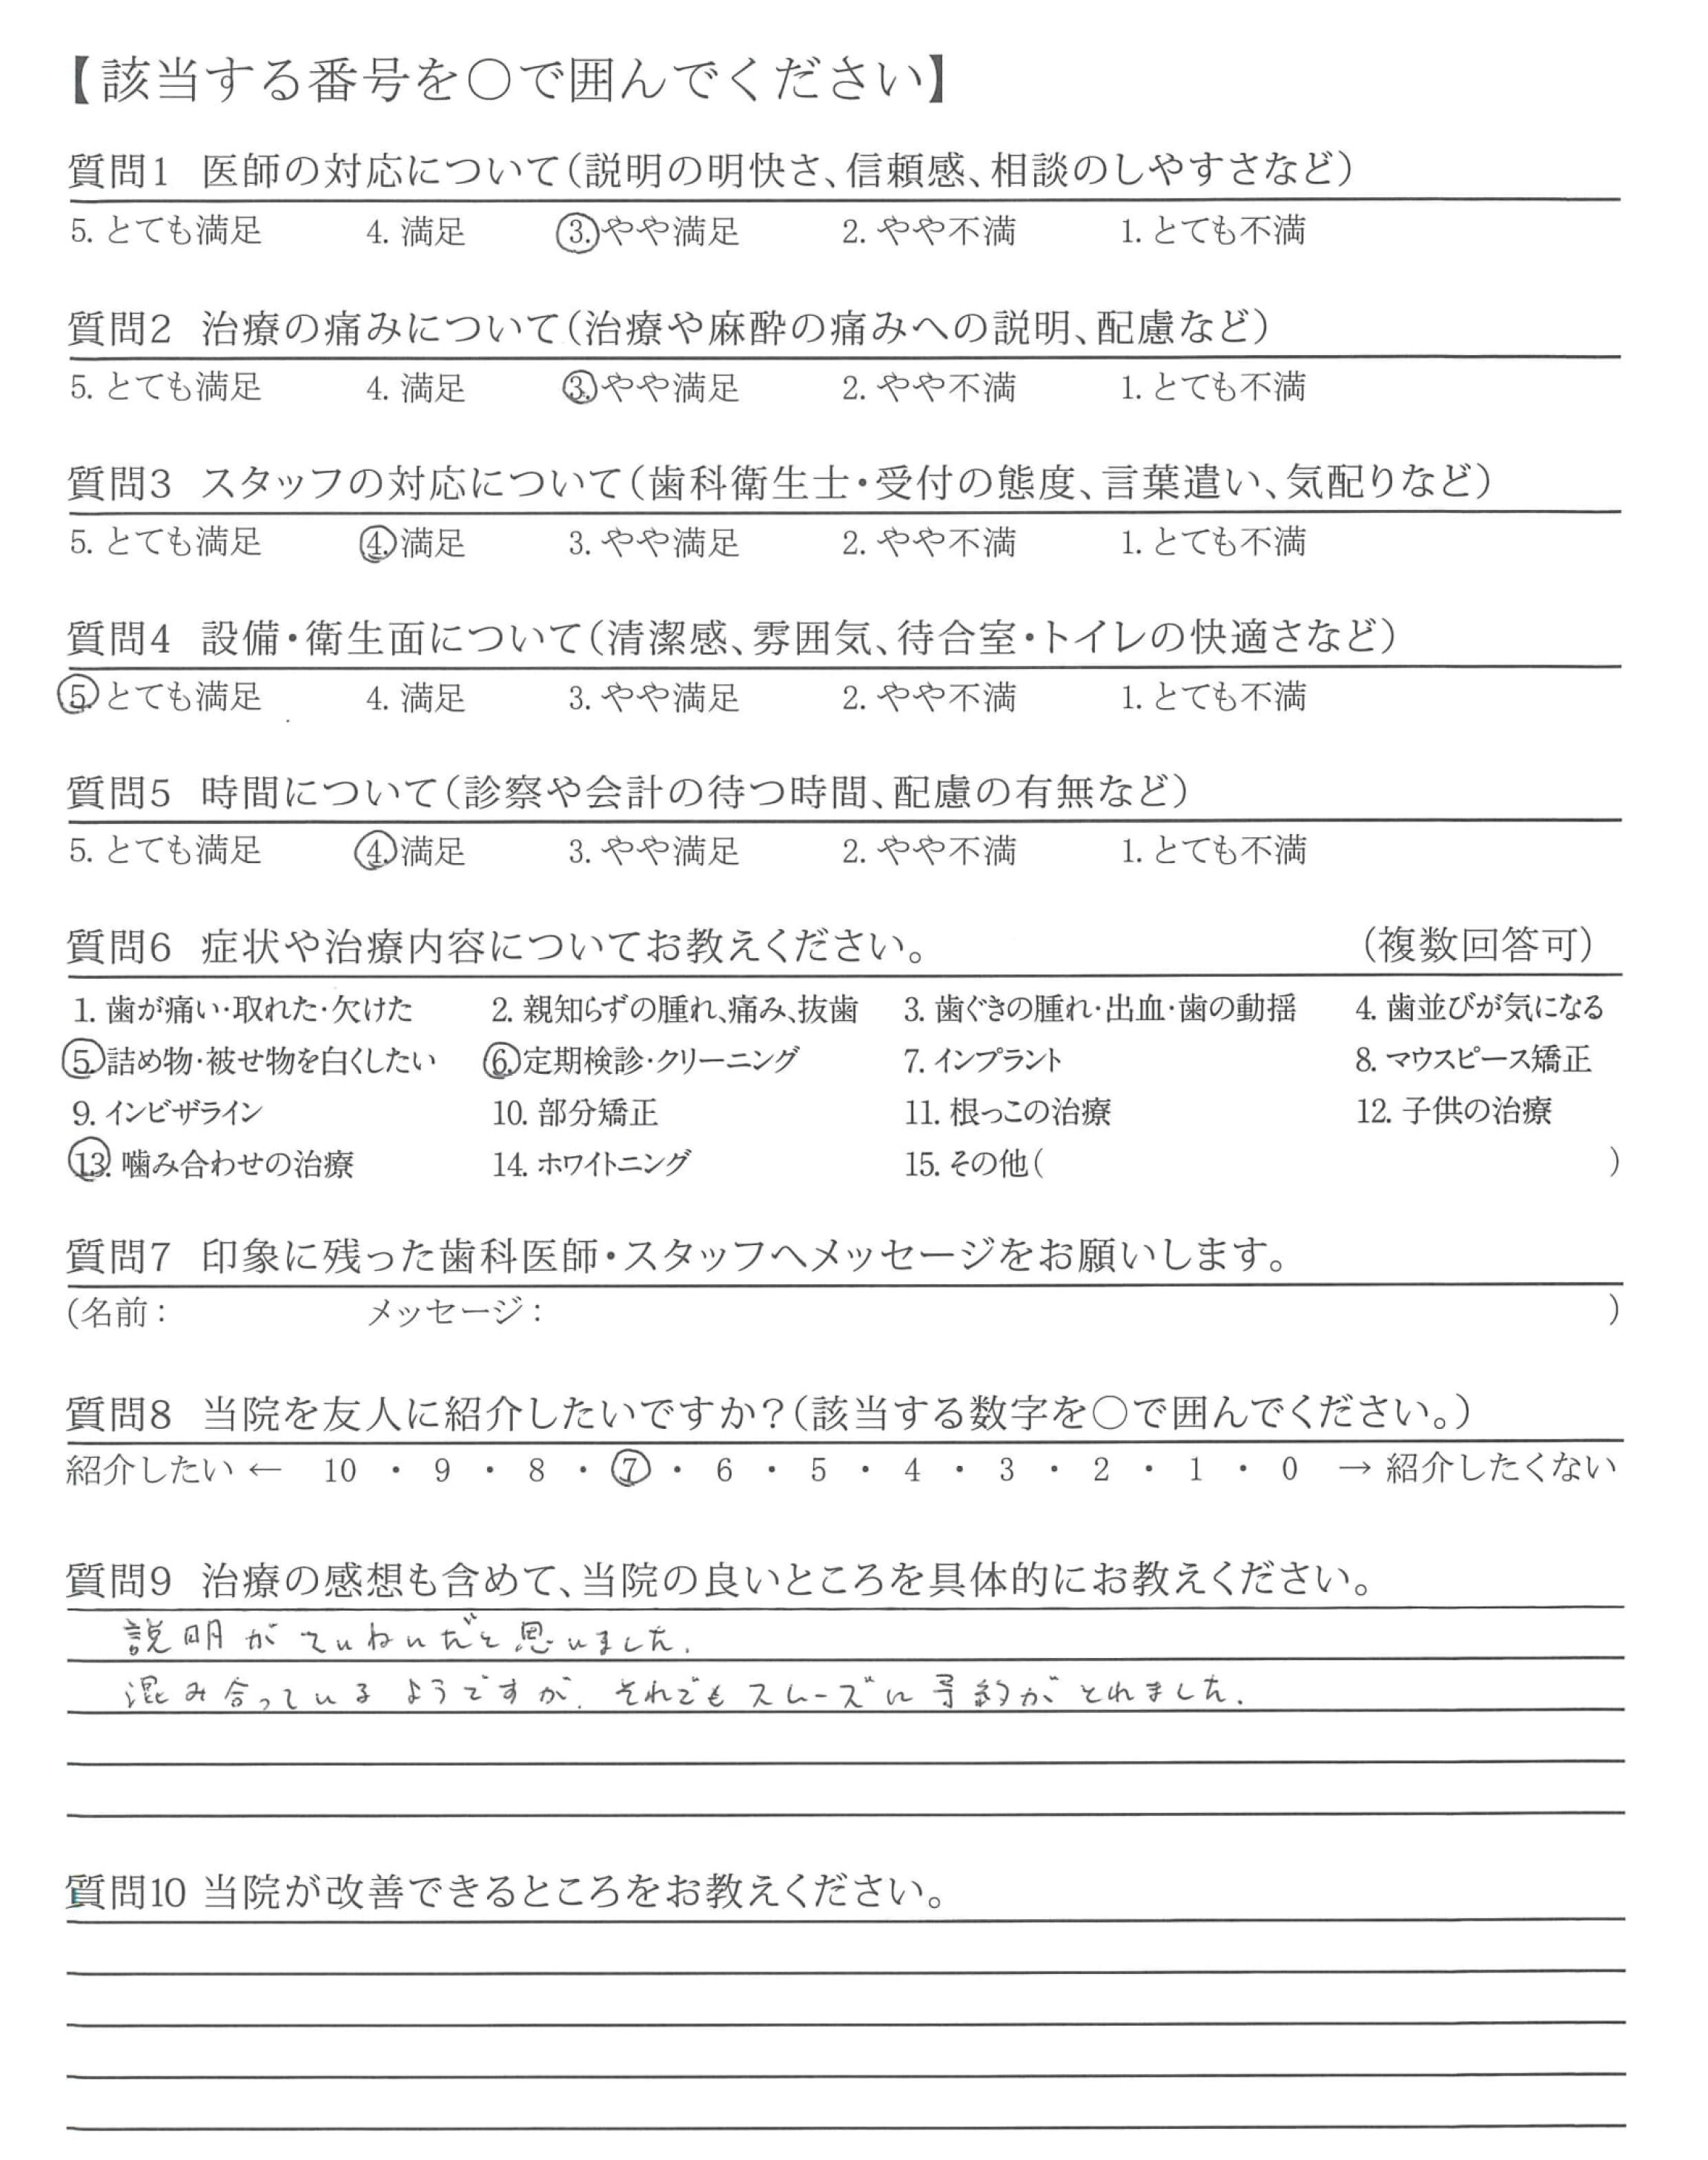 【該当する番号を○で囲んでください】
質問1 医師の対応について(説明の明快さ、信頼感、相談のしやすさなど)
5. とても満足 4. 満足 3. やや満足 2. やや不満 1. とても不満
質問2 治療の痛みについて(治療や麻酔の痛みへの説明、配慮など)
5. とても満足 4. 満足 3. やや満足 2. やや不満 1. とても不満
質問3 スタッフの対応について(歯科衛生士・受付の態度、言葉遣い、気配りなど)
5. とても満足 4. 満足 3. やや満足 2. やや不満 1. とても不満
質問4 設備・衛生面について(清潔感、雰囲気、待合室・トイレの快適さなど)
5. とても満足 4. 満足 3. やや満足 2. やや不満 1. とても不満
質問5 時間について(診察や会計の待つ時間、配慮の有無など)
5. とても満足 4. 満足 3. やや満足 2. やや不満 1. とても不満
質問6 症状や治療内容についてお教えください。 (複数回答可)
1. 歯が痛い・取れた・欠けた 2. 親知らずの腫れ、痛み、抜歯 3. 歯ぐきの腫れ・出血・歯の動揺 4. 歯並びが気になる
5. 詰め物・被せ物を白くしたい 6. 定期検診・クリーニング 7. インプラント 8. マウスピース矯正
9. インビザライン 10. 部分矯正 11. 根っこの治療 12. 子供の治療
13. 噛み合わせの治療 14. ホワイトニング 15. その他( )
質問7 印象に残った歯科医師・スタッフへメッセージをお願いします。
(名前: メッセージ: )
質問8 当院を友人に紹介したいですか?(該当する数字を○で囲んでください。)
紹介したい ← 10 ・ 9 ・ 8 ・ 7 ・ 6 ・ 5 ・ 4 ・ 3 ・ 2 ・ 1 ・ 0 → 紹介したくない
質問9 治療の感想も含めて、当院の良いところを具体的にお教えください。
説明がていねいだと思いました.
混み合っているようですが. それでもスムーズに予約がとれました.
質問10 当院が改善できるところをお教えください。